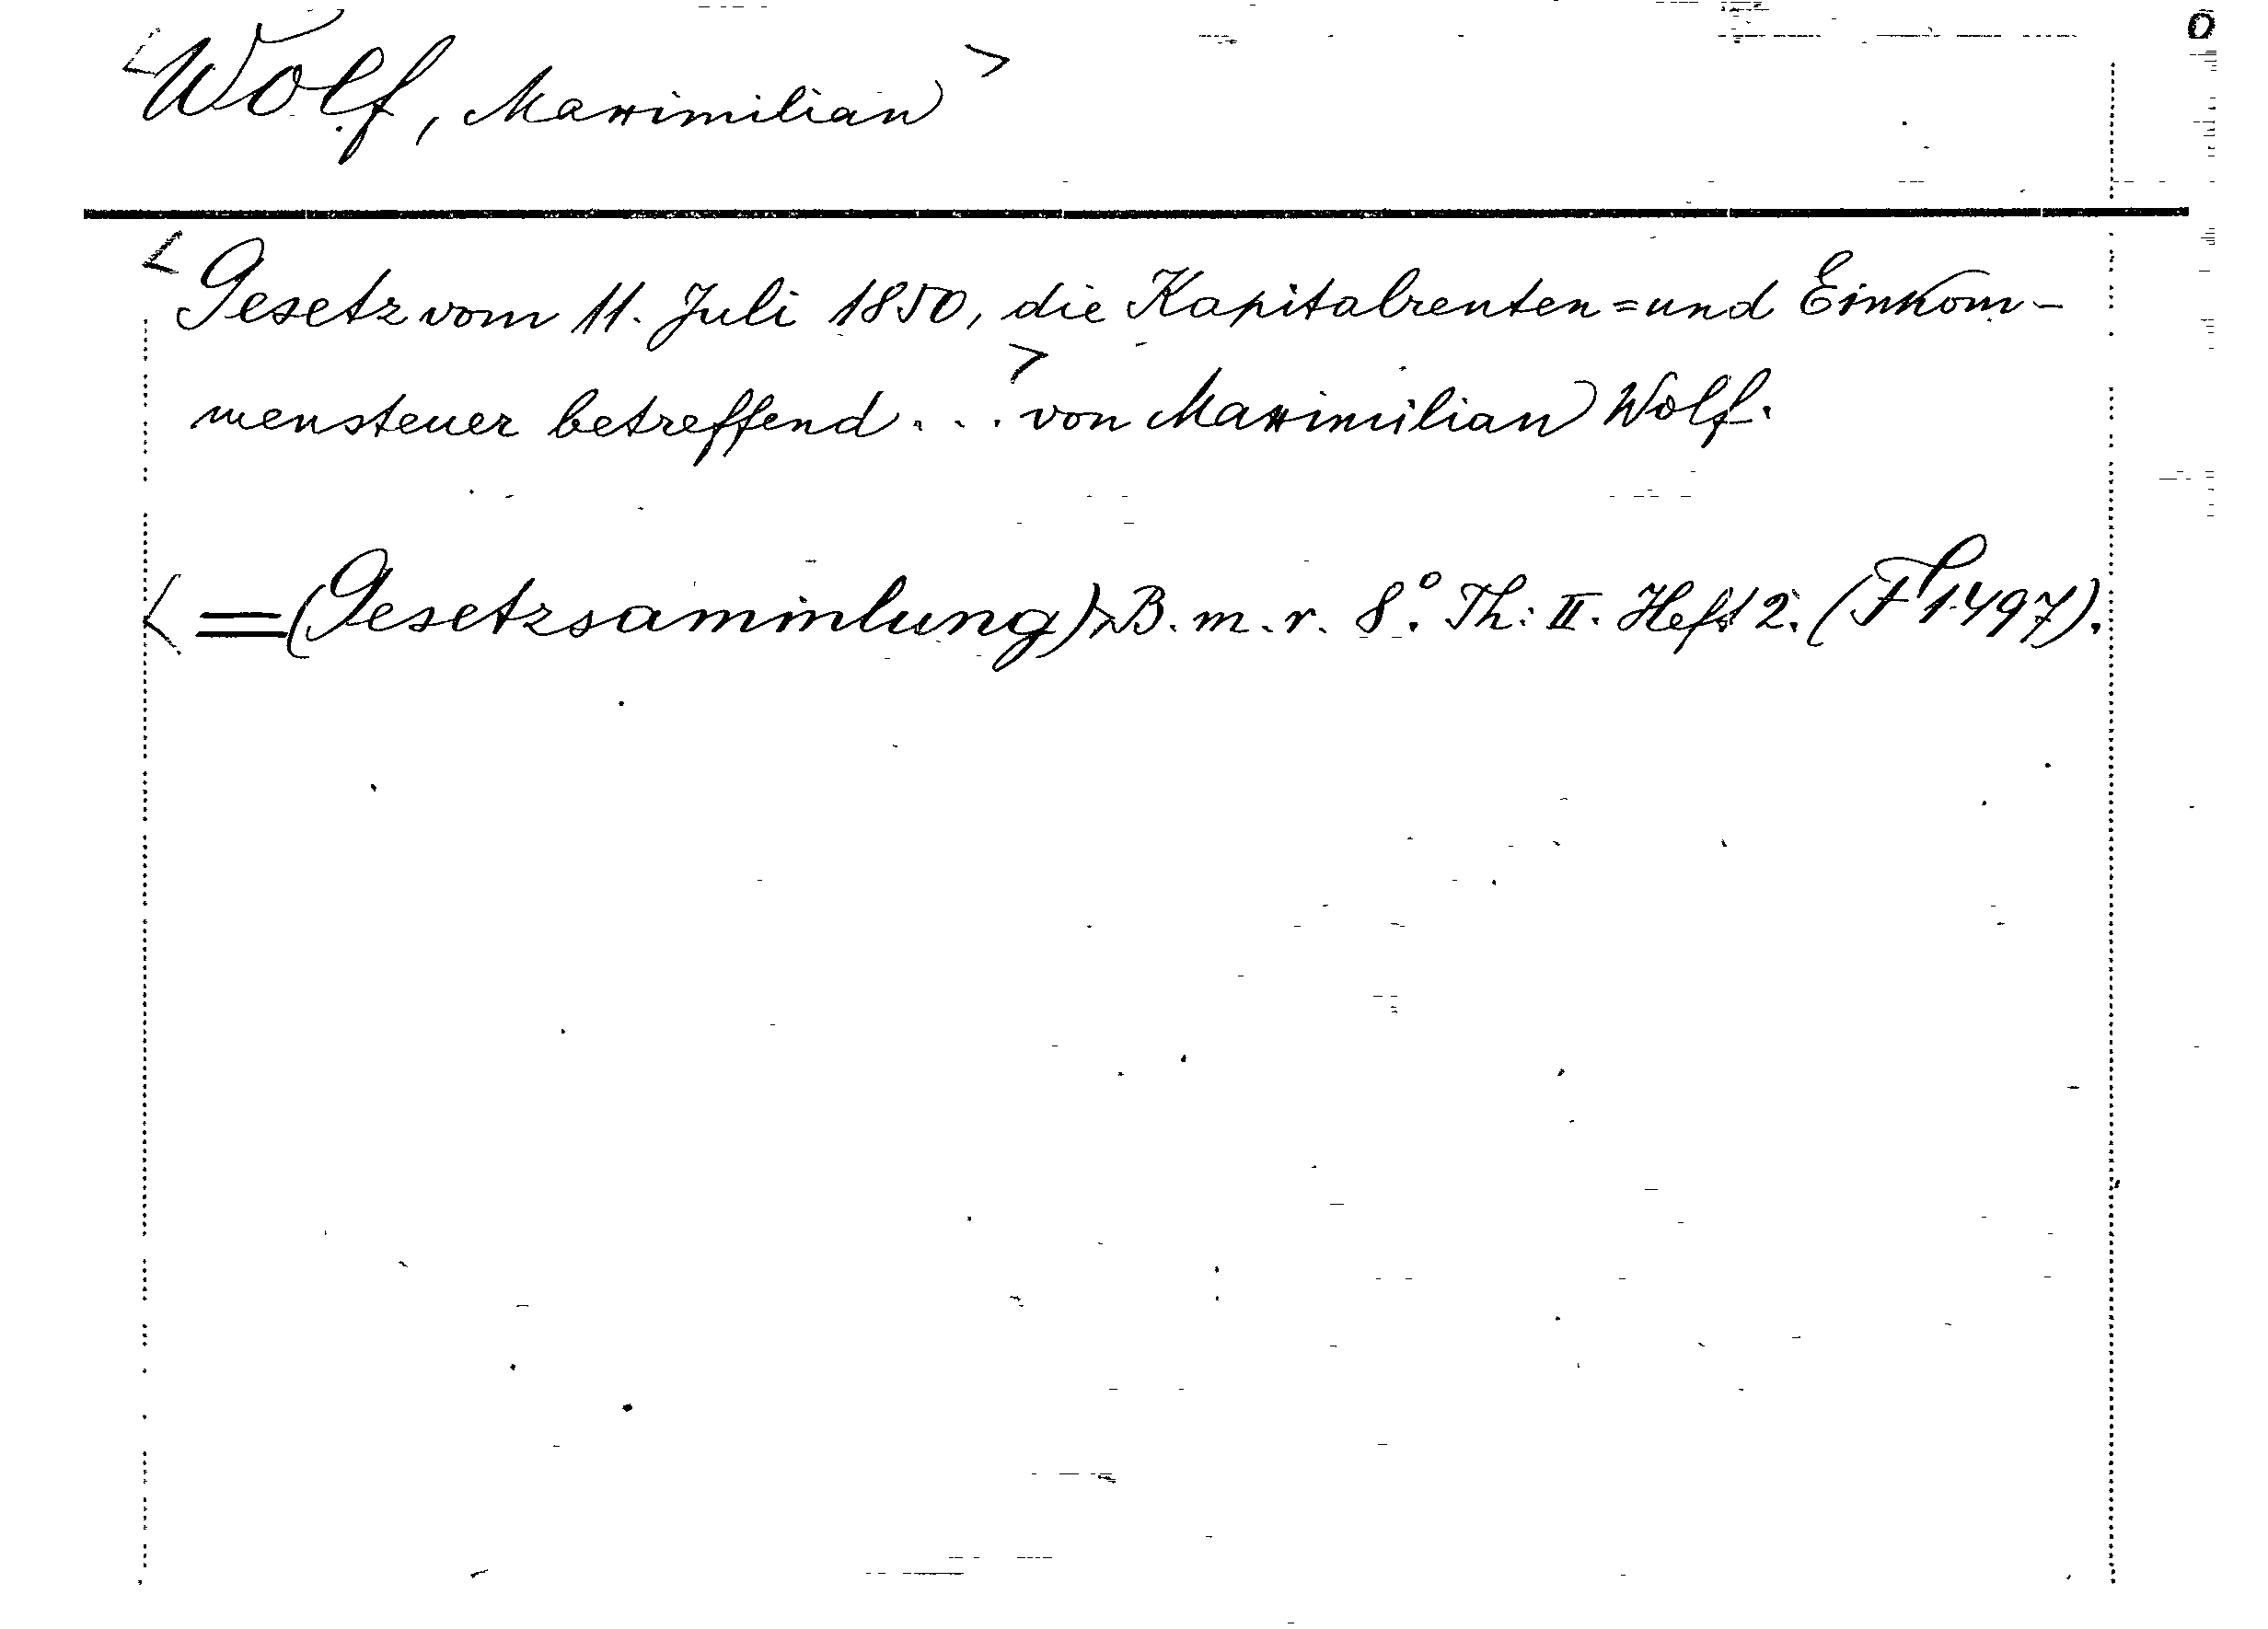 <Wolf, Maximilian>
<Gesetz vom 11. Juli 1850, die Kapitalrenten=und Einkom-
mensteuer betreffend...> von Maximilian Wolf.
<=(Gesetzsammlung)>B. m. r. 8°. Th: II. Heft 2. (Fl 1497).